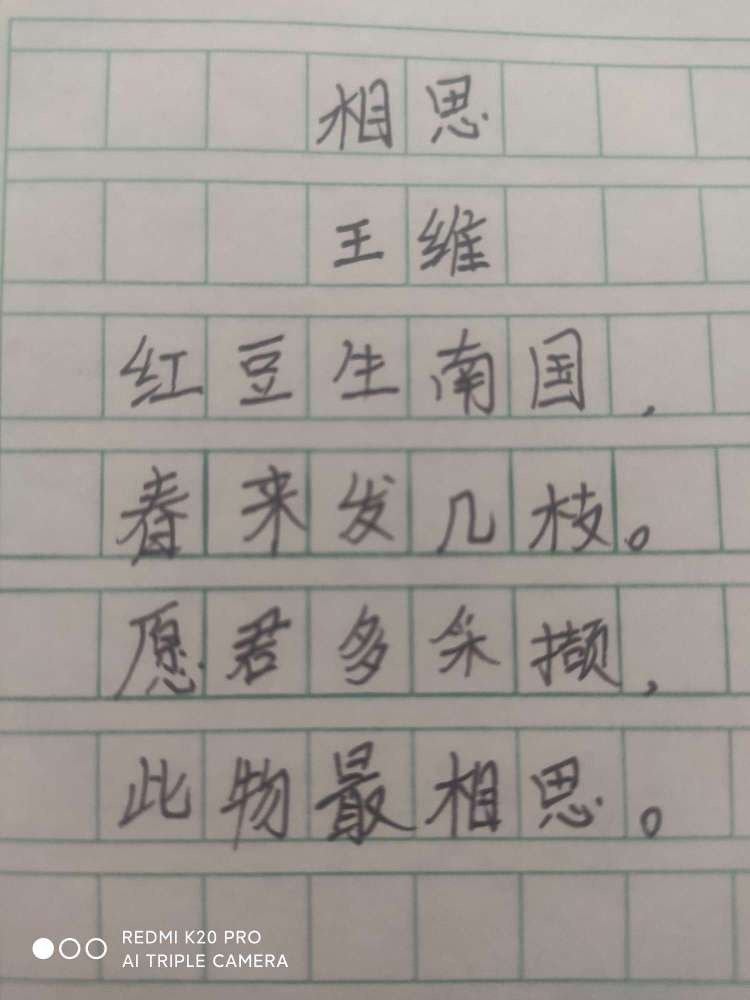 相思
王维
红豆生南国,
春来发几枝。
愿君多采撷,
此物最相思。
REDMI K20 PRO
AI TRIPLE CAMERA